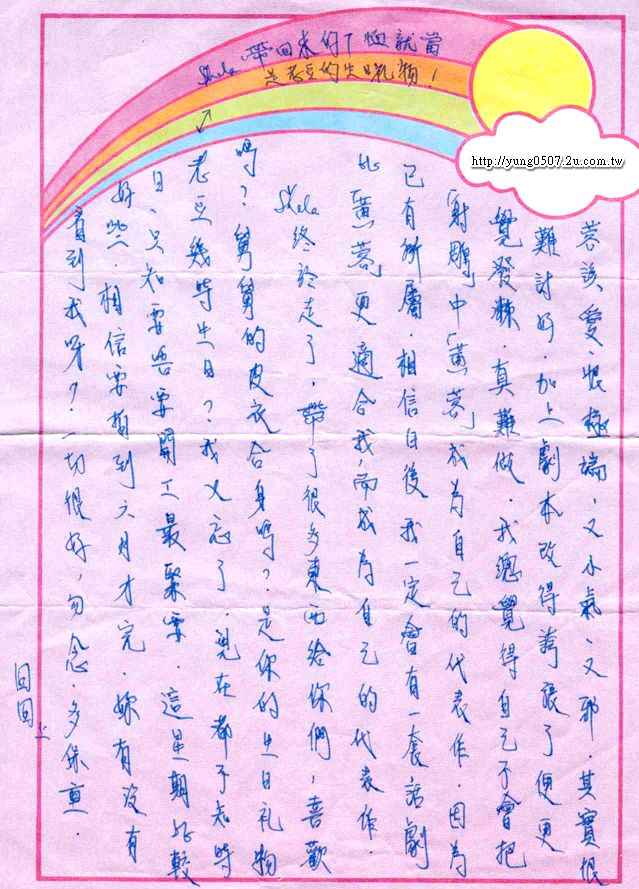 Shela 帶回來的T恤就當
是老豆的生日礼物!
http://yung0507.2u.com.tw
蓉該、愛、恨極端、又小氣、又邪.其實很
難討好.加上劇本改得誇張了便更
覺發.真難做.我總覺得自己不會把
「射鵰」中「黃蓉」成為自己的代表作.因為
已有所屬.相信日後我一定會有一套話劇
比「黃蓉」更適合我,而成為自己的代表作.
Shela 終於走了,帶了很多東西給你們,喜歡
嗎?舅舅的皮衣合身嗎?是你的生日礼物
老豆幾時生日?我又忘了.現在都不知時
日、只知要唔要開工最緊要.這星期比較
好些.相信要拍到六月才完.妳有沒有
看到我呀?一切很好,勿念.多保重.
回回 上